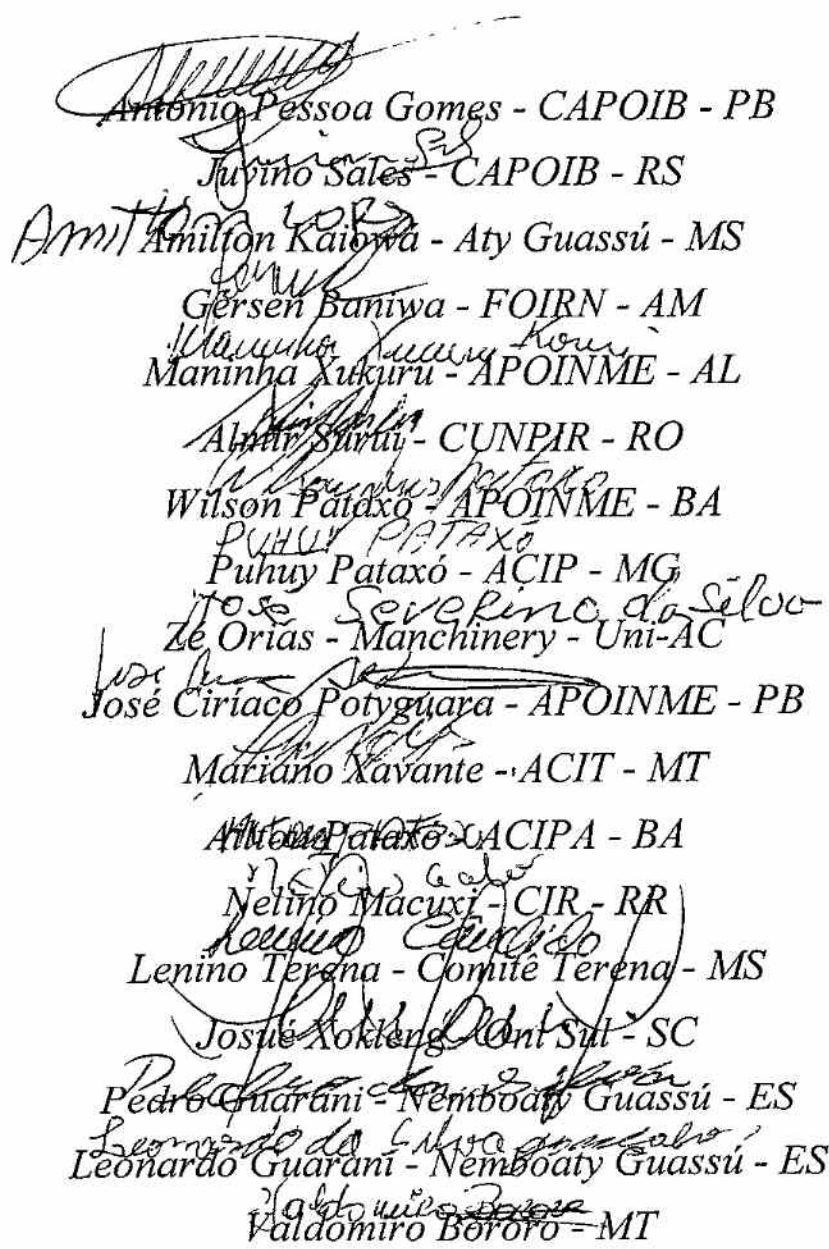 Antônio Pessoa Gomes - CAPOIB - PB
Juvino Sales - CAPOIB - RS
Amilton Lopes
Amilton Kaiowá - Aty Guassú - MS
Gersen Baniwa - FOIRN - AM
Maninha Xukuru
Maninha Xukuru - APOINME - AL
Almir Suruí - CUNPIR - RO
Wilson Pataxó - APOINME - BA
PUHUY PATAXÓ
Puhuy Pataxó - ACIP - MG
José Severino da Silva
Zé Orias - Manchinery - Uni-AC
José
José Ciríaco Potyguara - APOINME - PB
Mariano Xavante - ACIT - MT
Ailton Pataxó - ACIPA - BA
Nelino Macuxi - CIR - RR
Lenino Candido
Lenino Terena - Comitê Terena - MS
Josué Xokleng - Oni Sul - SC
Pedro da Silva
Pedro Guarani - Nemboaty Guassú - ES
Leonardo da Silva
Leonardo Guarani - Nemboaty Guassú - ES
Valdomiro Bororo
Valdomiro Bororo - MT